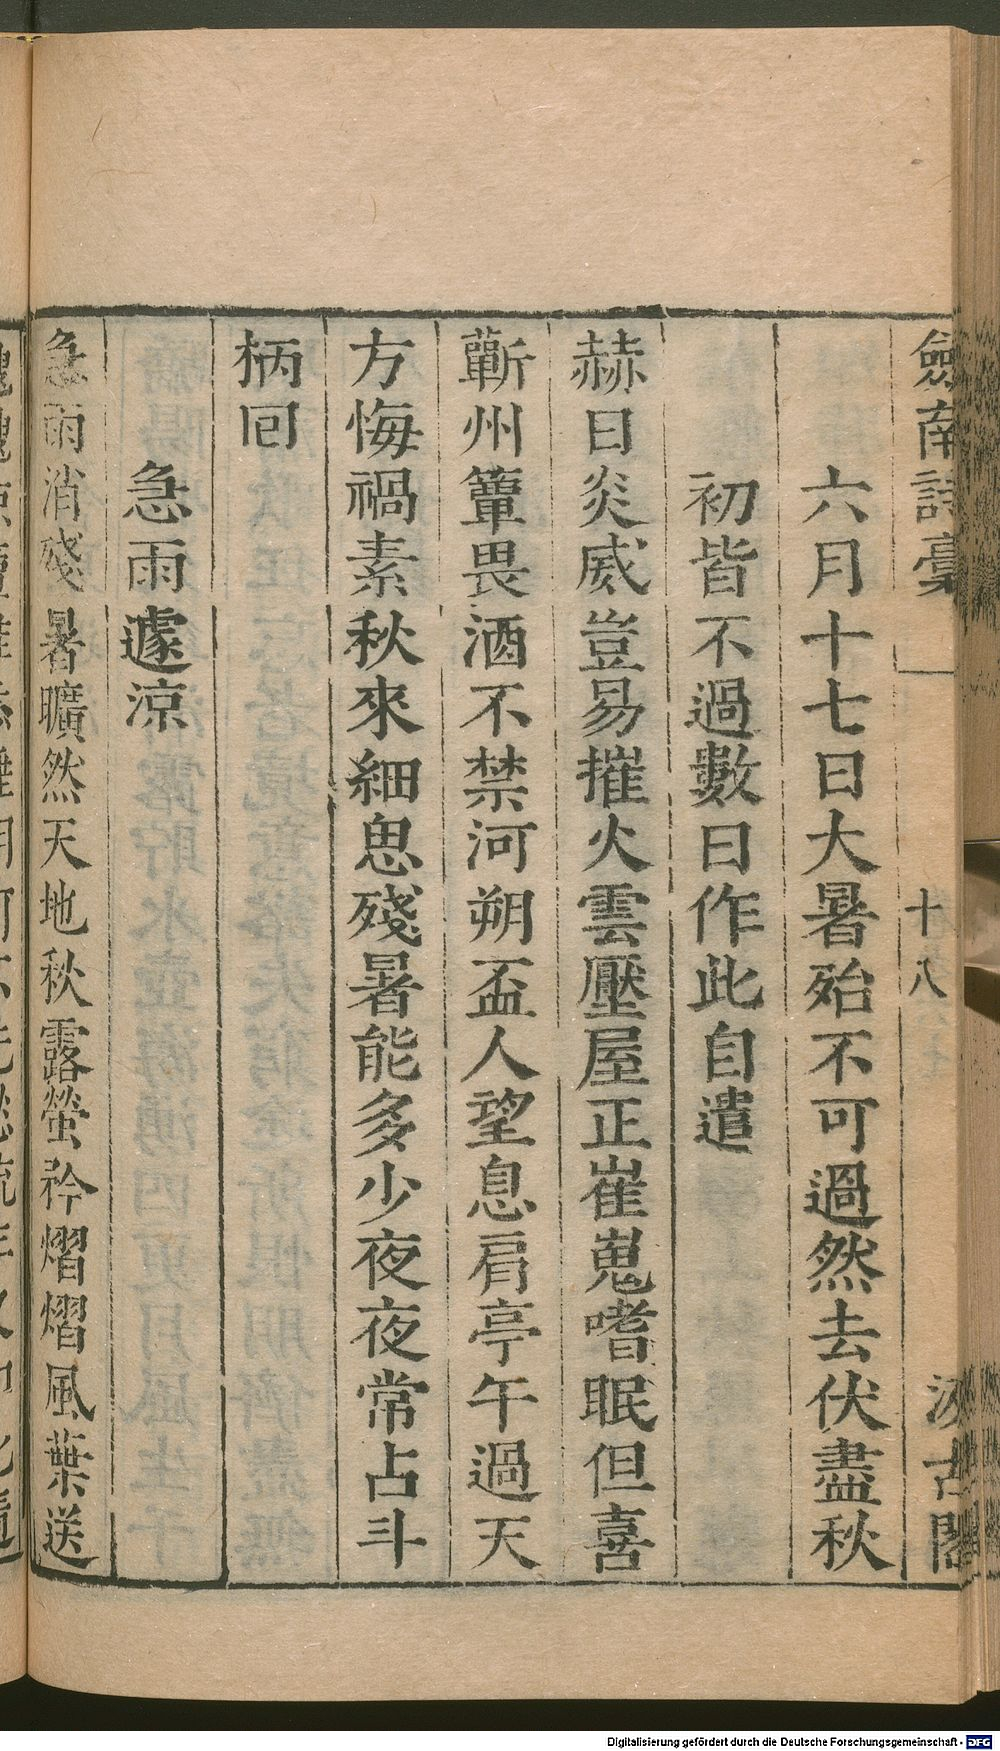 劍南詩稾 十八 汲古閣
六月十七日大暑殆不可過然去伏盡秋
初皆不過數日作此自遣
赫日炎威豈易摧火雲壓屋正崔嵬嗜眠但喜
蘄州簟畏酒不禁河朔盃人望息肩亭午過天
方悔禍素秋來細思殘暑能多少夜夜常占斗
柄回
急雨遽涼
急雨消殘暑曠然天地秋露螢矜熠熠風葉送
Digitalisierung gefördert durch die Deutsche Forschungsgemeinschaft - DFG